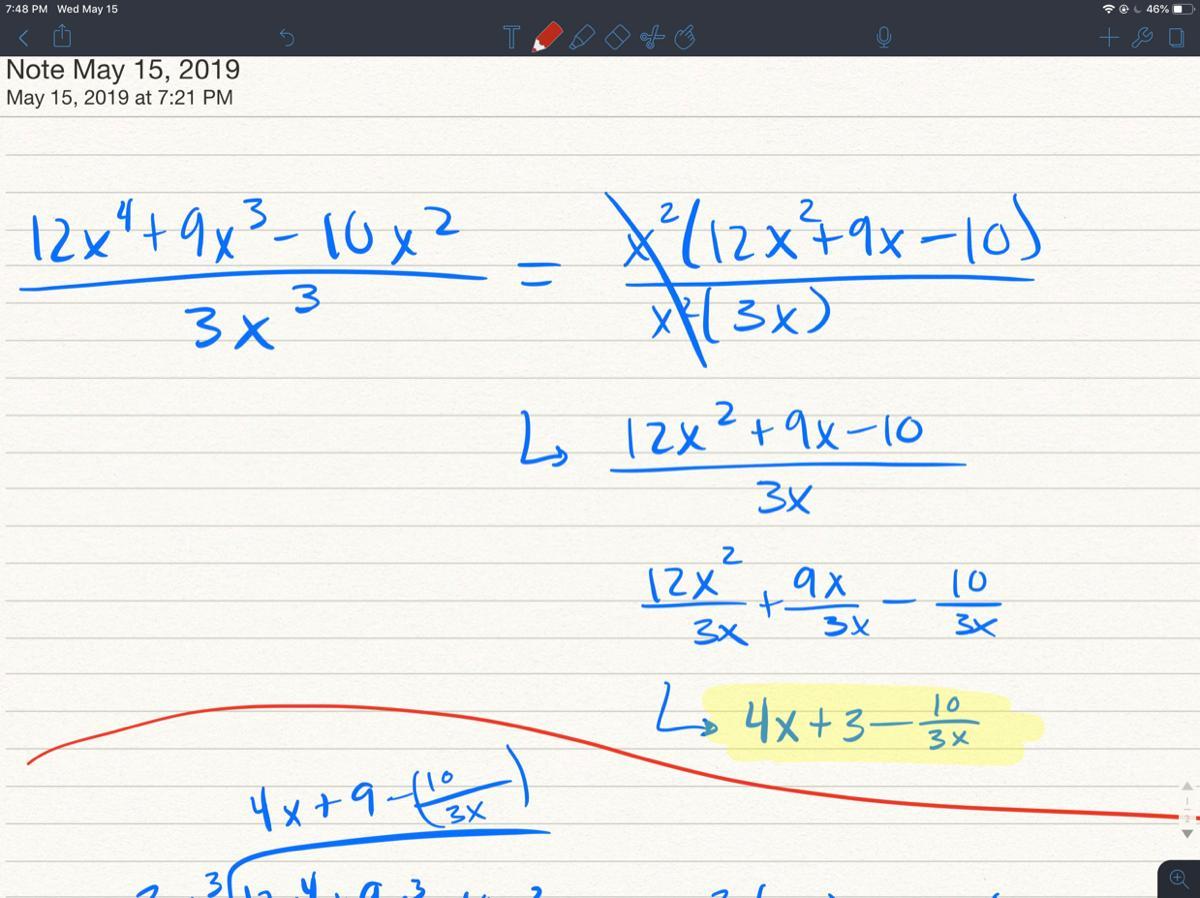 7:48 PM Wed May 15
46%
T
Note May 15, 2019
May 15, 2019 at 7:21 PM
12x⁴+9x³-10x² / 3x³ = x²(12x²+9x-10) / x²(3x)
12x²+9x-10 / 3x
12x²/3x + 9x/3x - 10/3x
4x+3-10/3x
4x+9-(10/3x)